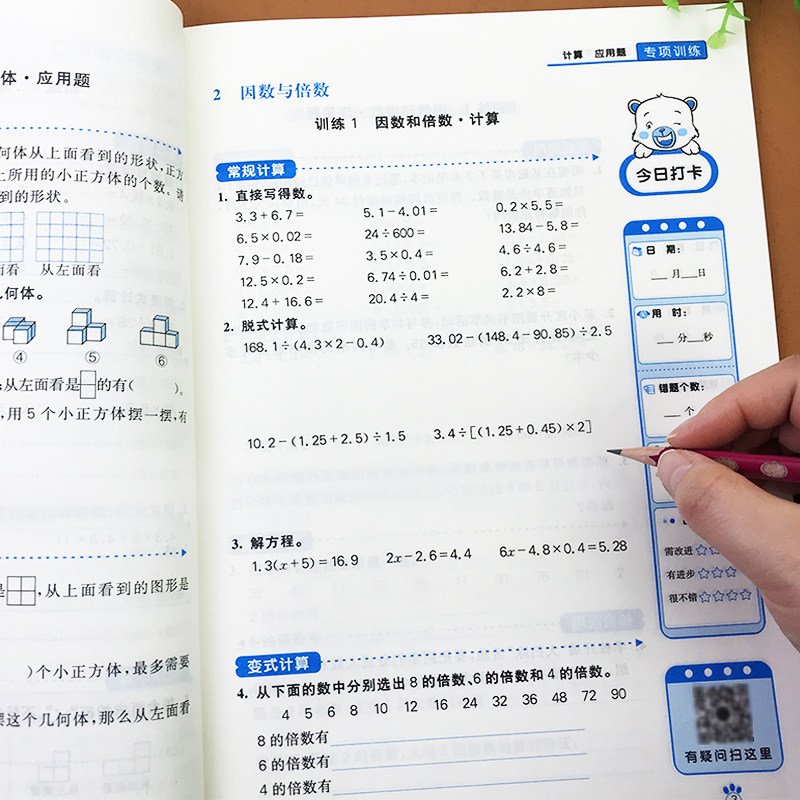 体·应用题
何体从上面看到的形状,正方
上所用的小正方体的个数。请
到的形状。
面看 从左面看
几何体。
④ ⑤ ⑥
从左面看是 的有( )。
,用5个小正方体摆一摆,有
是 ,从上面看到的图形是
)个小正方体,最多需要
摆这个几何体,那么从左面看
计算 应用题 专项训练
2 因数与倍数
训练1 因数和倍数·计算
常规计算
1. 直接写得数。
3.3+6.7= 5.1-4.01= 0.2×5.5=
6.5×0.02= 24÷600= 13.84-5.8=
7.9-0.18= 3.5×0.4= 4.6÷4.6=
12.5×0.2= 6.74÷0.01= 6.2+2.8=
12.4+16.6= 20.4÷4= 2.2×8=
2. 脱式计算。
168.1÷(4.3×2-0.4) 33.02-(148.4-90.85)÷2.5
10.2-(1.25+2.5)÷1.5 3.4÷[(1.25+0.45)×2]
3. 解方程。
1.3(x+5)=16.9 2x-2.6=4.4 6x-4.8×0.4=5.28
变式计算
4. 从下面的数中分别选出8的倍数、6的倍数和4的倍数。
4 5 6 8 10 12 16 24 32 36 48 72 90
8的倍数有
6的倍数有
4的倍数有
今日打卡
日 期:
月 日
用 时:
分 秒
错题个数:
个
需改进☆
有进步☆☆☆
很不错☆☆☆☆
有疑问扫这里